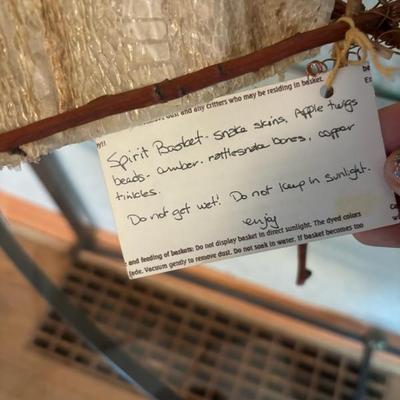 dust and any critters who may be residing in basket.
Spirit Basket - snake skins, Apple twigs
beads - amber, rattlesnake bones, copper
tinkles.
Do not get wet! Do not keep in sunlight.
enjoy
and feeding of baskets: Do not display basket in direct sunlight. The dyed colors
fade. Vacuum gently to remove dust. Do not soak in water. If basket becomes too